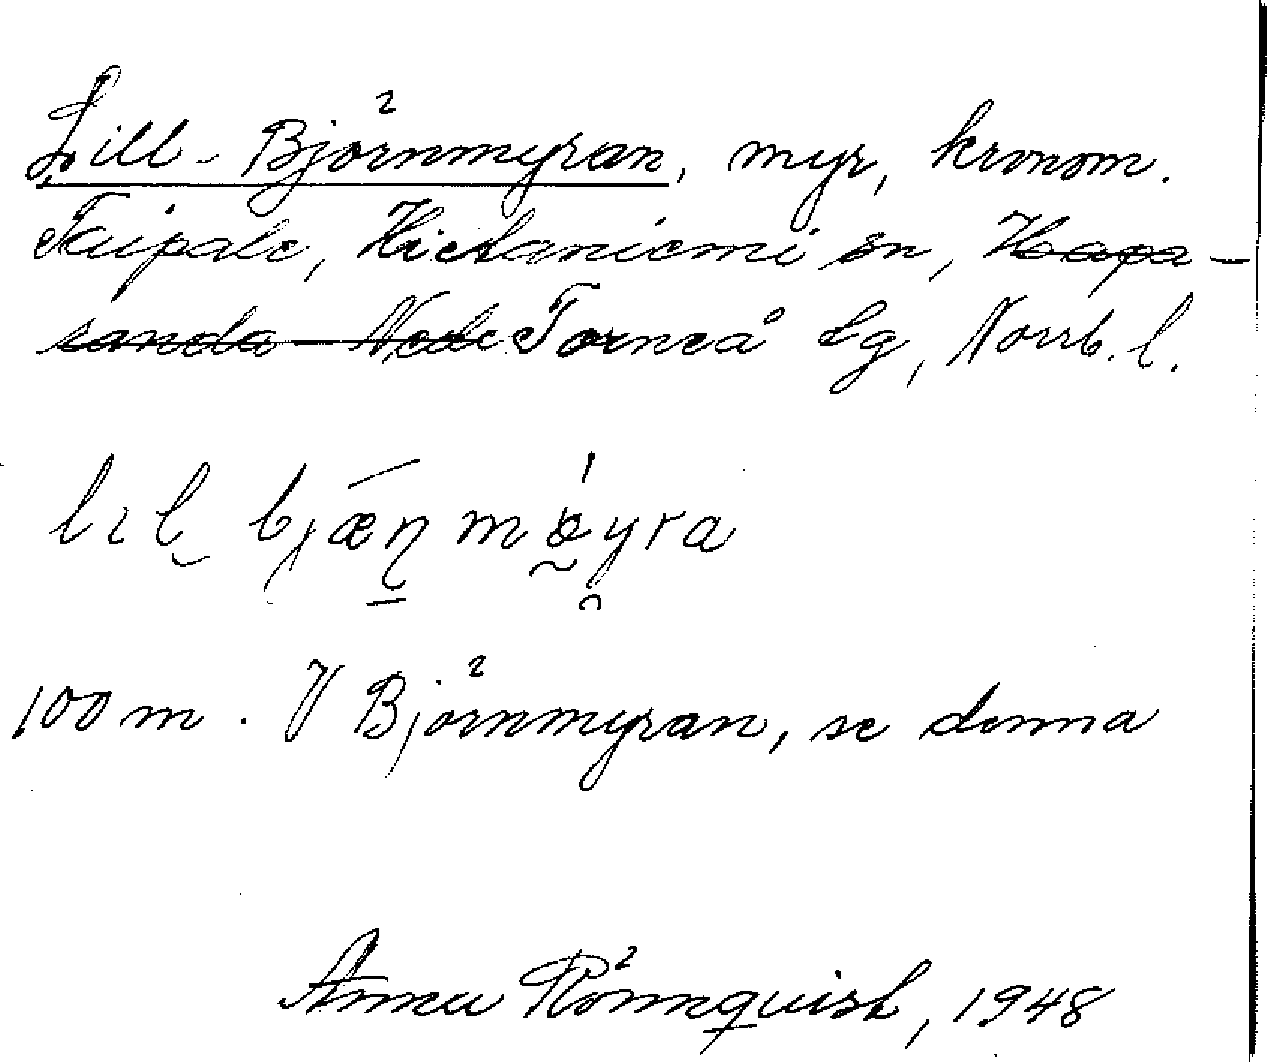 Lill-Björnmyran, myr, kronom.
Taipale, Hietaniemi sn, Hapa-
randa - Nede Torneå tg, Norrb. l.
lɩl bjæṇ møyra
100 m. V Björnmyran, se denna
Anna Rönnquist, 1948